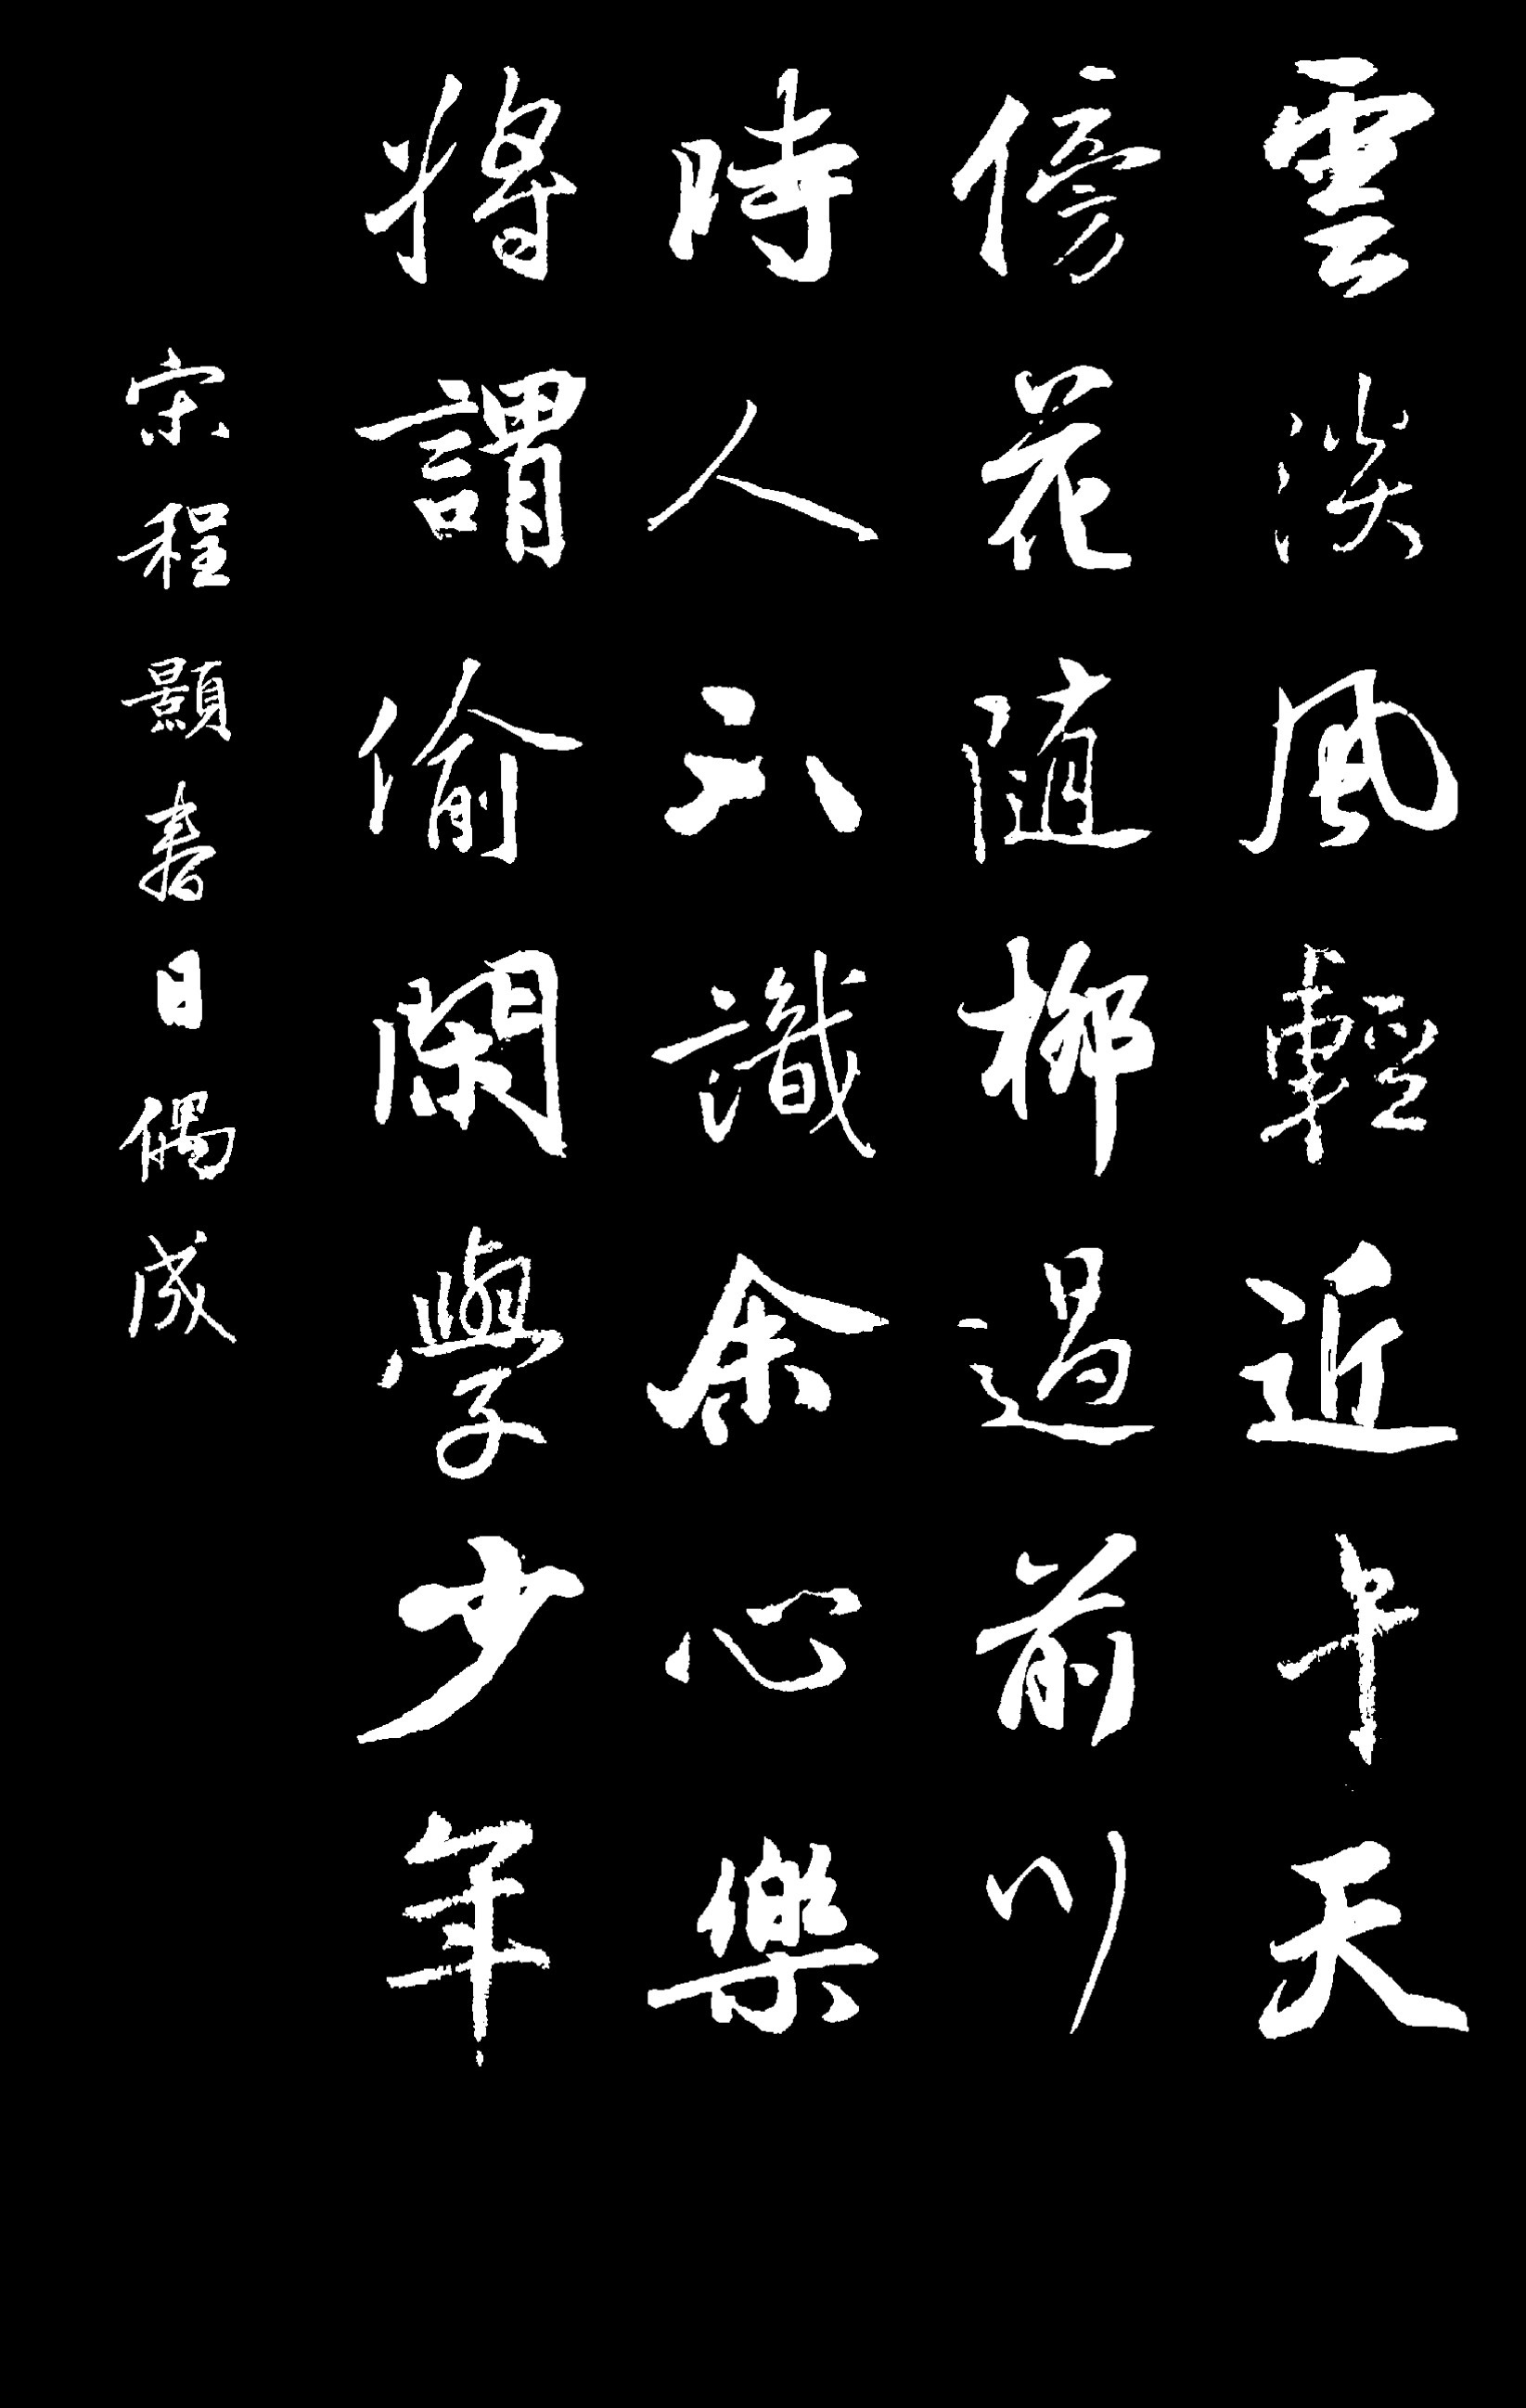 雲淡風輕近午天
傍花隨柳過前川
時人不識余心樂
將謂偷閑學少年
宋程顥春日偶成